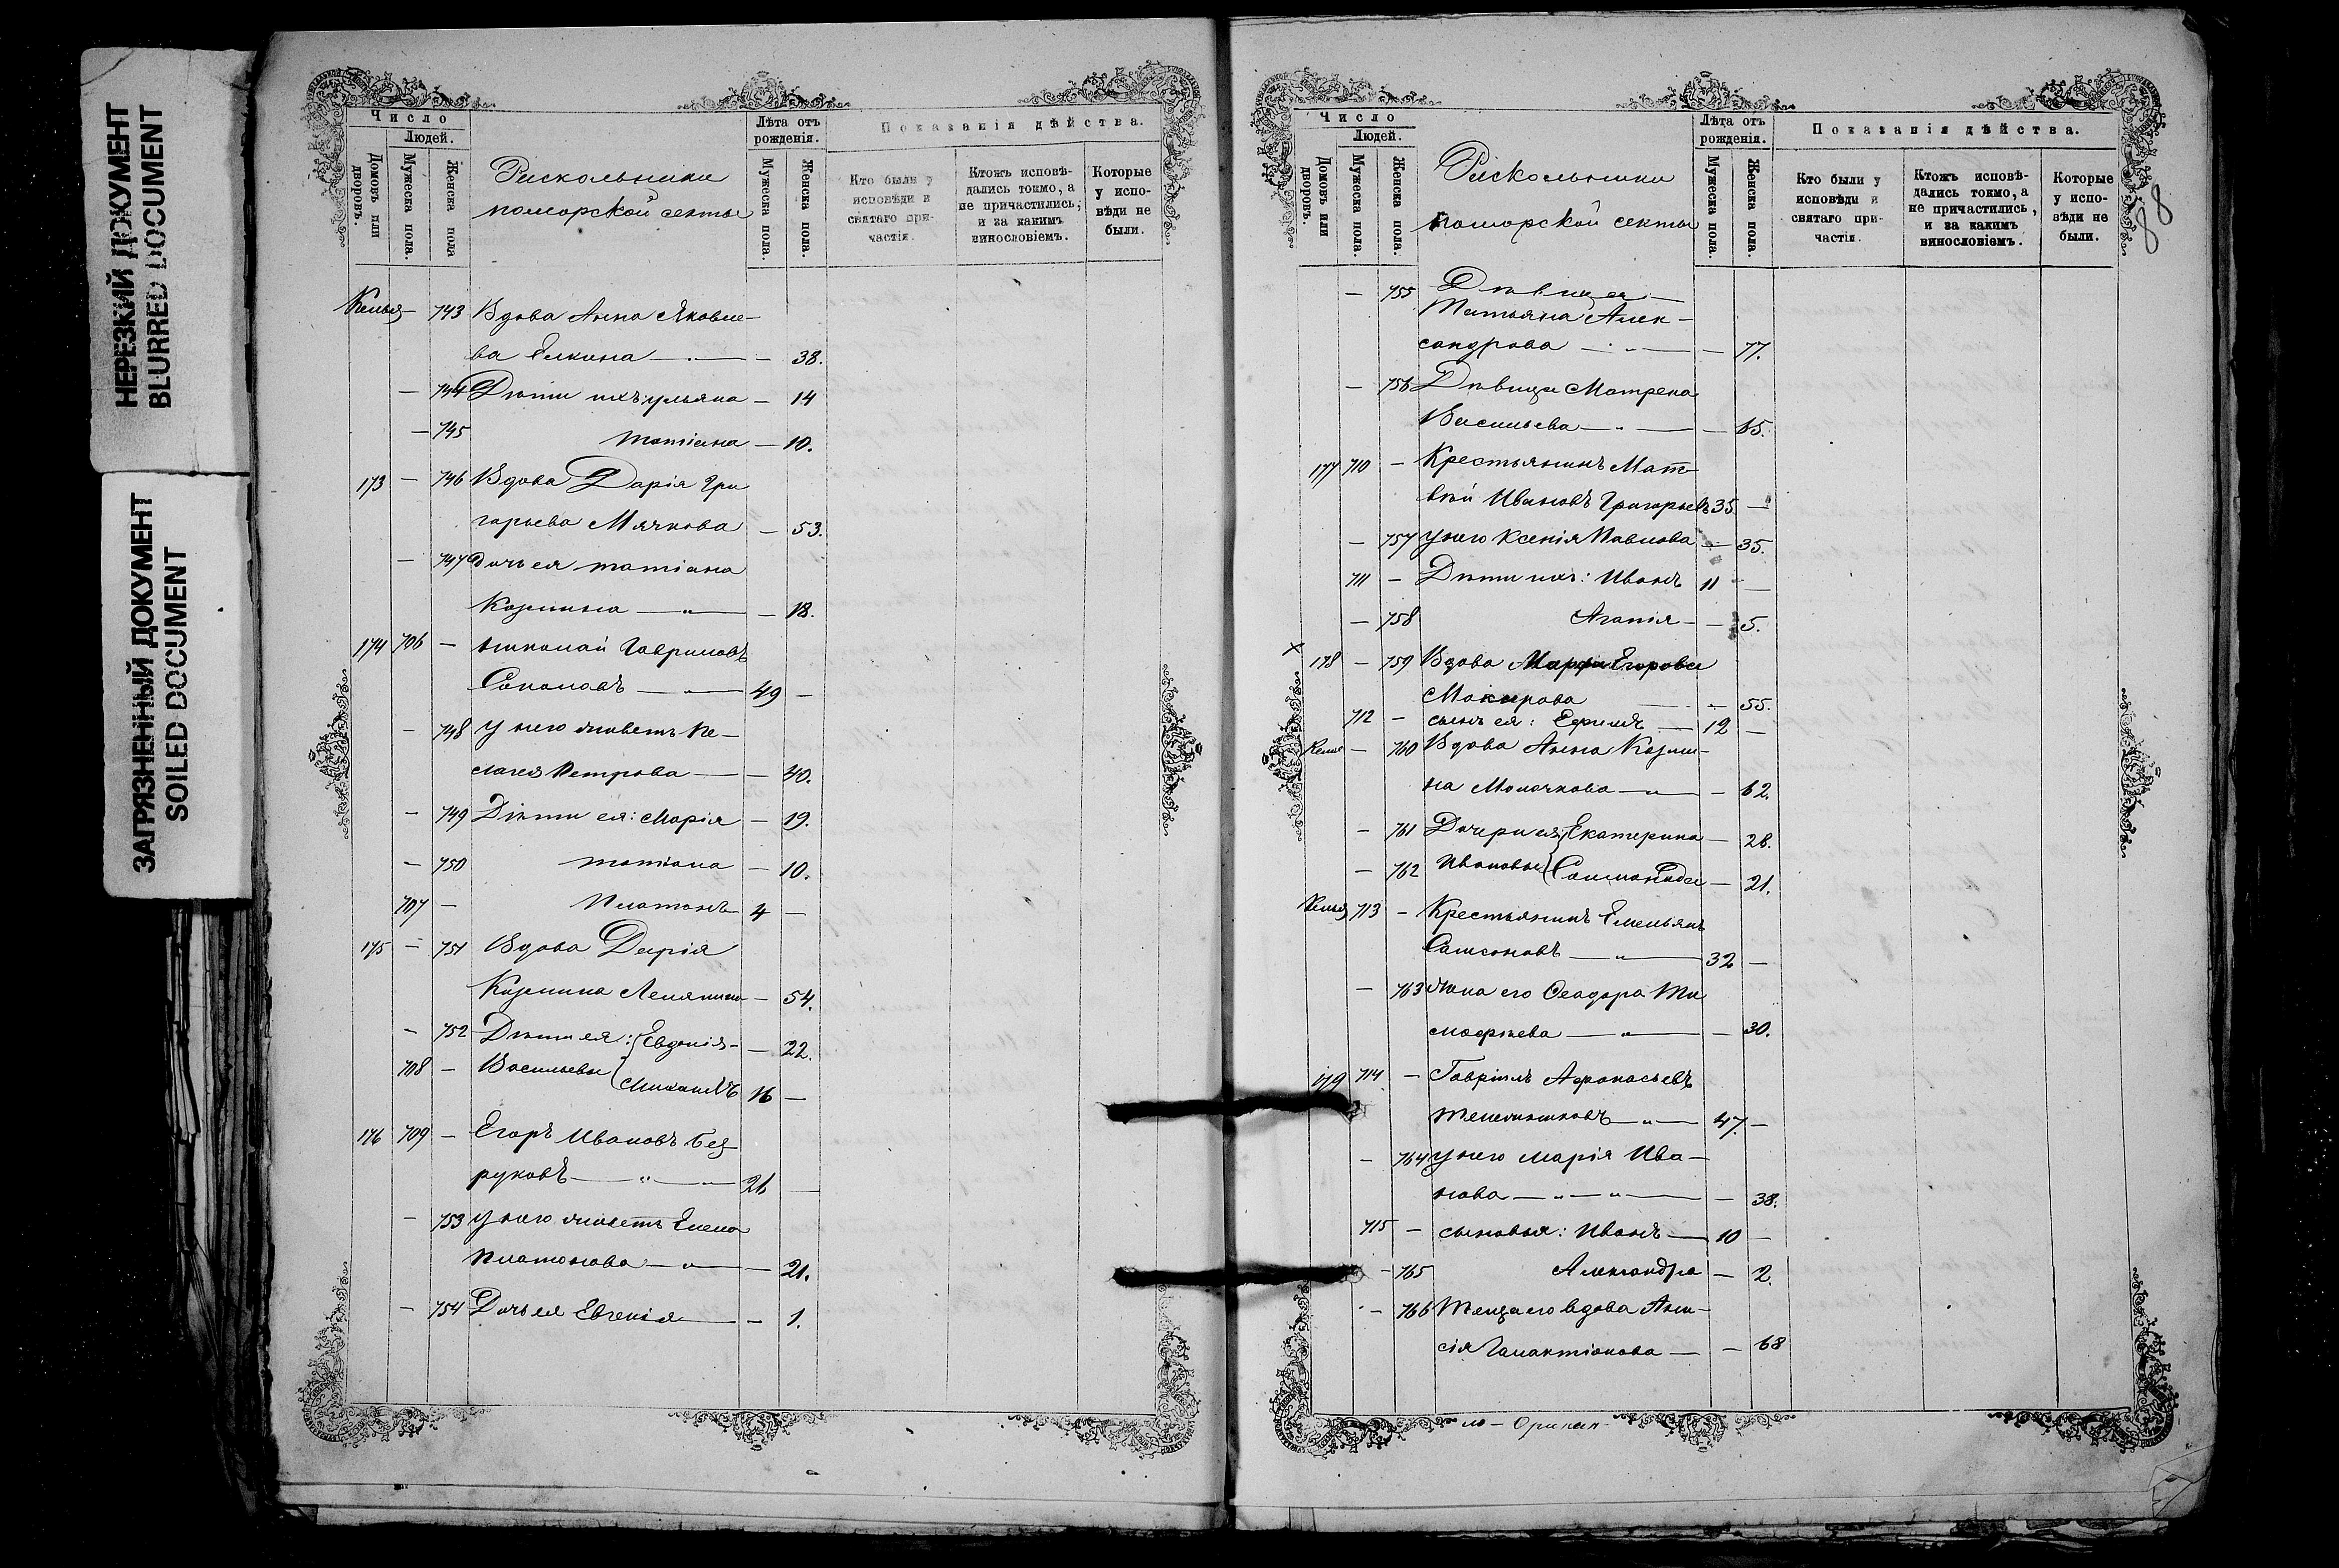 НЕРЕЗКИЙ ДОКУМЕНТ
BLURRED DOCUMENT
ЗАГРЯЗНЕННЫЙ ДОКУМЕНТ
SOILED DOCUMENT
Число
Людей.
Домовъ или дворовъ.
Мужеска пола.
Женска пола
Раскольники
поморской секты
Лѣта отъ рожденія.
Мужеска пола.
Женска пола.
Показанія дѣйства.
Кто были у исповѣди и святаго причастія.
Ктожъ исповѣдались токмо, а не причастились, и за какимъ винословіемъ.
Которые у исповѣди не были.
Келья — 743 Вдова Анна Яковле-
ва Елкина — — 38.
— 744 Дѣти ихъ: ульяна — 14
— 745 татіана — 10.
173 — 746 Вдова Дарія Гри
горьева Мячкова — 53.
— 747 дочь ея татіана
Козмина — „ — — 18.
174 706 — Николай Гавриловъ
Соколовъ — 49 —
— 748 У него живетъ Пе-
лагея Петрова — — 40.
— 749 Дѣти ея: Марія — 19.
— 750 татіана — 10.
707 — Платонъ 4 —
175 — 751 Вдова Дарія
Козмина — 54.
— 752 Дѣти ея: Евдокія — 22.
708 — Васильевы Михаилъ 16 —
176 709 — Егоръ Ивановъ Без
руковъ — „ — 26 —
— 753 У него живетъ Елена
Платонова — „ — — 21.
— 754 Дочь ея Евгенія — — 1.
88
Число
Людей.
Домовъ или дворовъ.
Мужеска пола.
Женска пола.
Раскольники
поморской секты
Лѣта отъ рожденія.
Мужеска пола.
Женска пола.
Показанія дѣйства.
Кто были у исповѣди и святаго причастія.
Ктожъ исповѣдались токмо, а не причастились, и за какимъ винословіемъ.
Которые у исповѣди не были.
— 755 Дѣвица —
Татьяна Алек-
сандрова — „ — — 77.
— 756 Дѣвица Матрена
Васильева — „ — — 65.
177 710 — Крестьянинъ Мат-
вѣй Ивановъ Григорьевъ 35 —
— 757 У него Ксенія Павлова — 35.
711 — Дѣти ихъ: Иванъ 11 —
— 758 Агапія — — 5.
х
178 — 759 Вдова Марфа Егорова
Макарова — 55.
712 — сынъ ея: Ефимъ — 12 —
Келья — 760 Вдова Анна Козми-
на Молочкова — „ — — 62.
— 761 Дочери ея Екатерина — 28.
— 762 Ивановы Соломонида — 21.
Келья 713 — Крестьянинъ Емельянъ
Самсоновъ — „ — 32 —
— 763 Жена его Феодора Ти
мофѣева — „ — — 30.
179 714 — Гавріилъ Афанасьевъ
— „ — 47. —
— 764 У него Марія Ива-
нова — „ — „ — — 38.
715 — сыновья: Иванъ — 10 —
— 765 Александра — 2.
— 766 Теща его вдова Ани-
сія Галактіонова — — 68